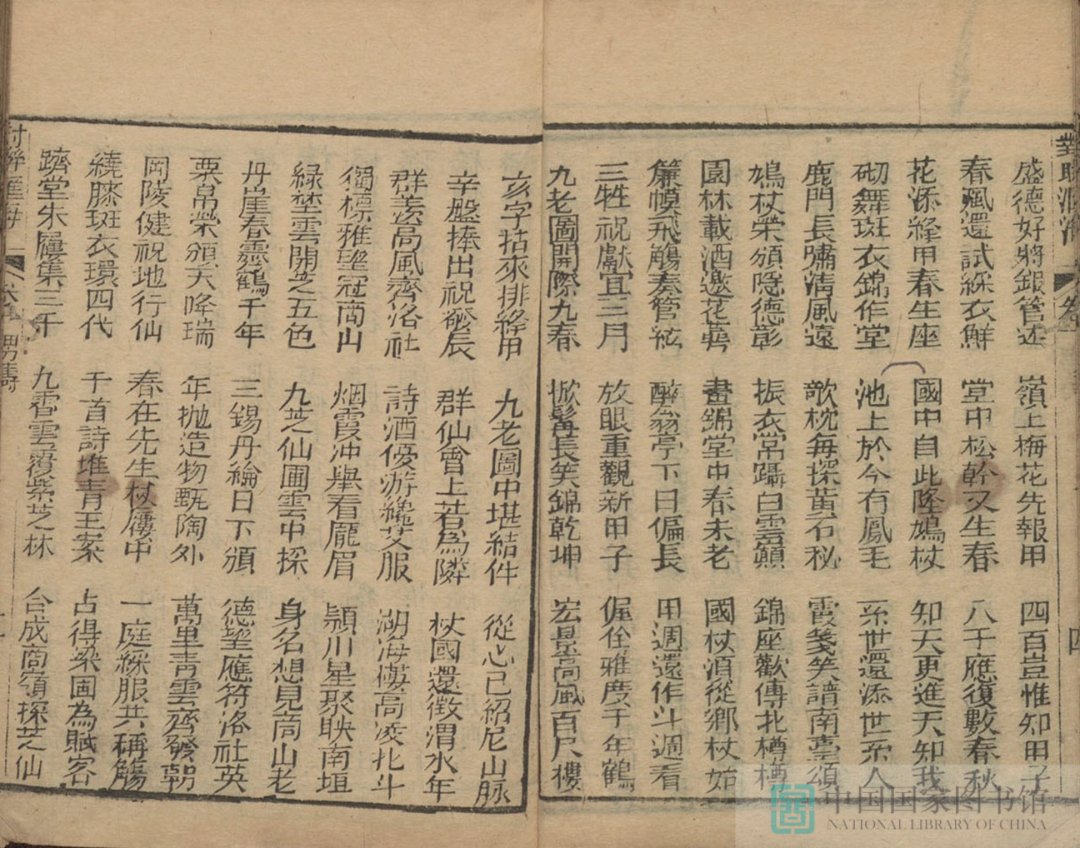 盛德好將銀管述　嶺上梅花先報甲　四百豈惟知甲子
春風還試綵衣鮮　堂中松幹又生春　八千應復數春秋
花添絳甲春生座　國中自此隆鳩杖　知天更進天知我
砌舞斑衣錦作堂　池上於今有鳳毛　系世還添世系人
鹿門長嘯清風遠　欹枕每探黃石秘　霞箋笑譜南臺頌
鳩杖榮頒隱德彰　振衣常躡白雲巔　錦座歡傳北樽楢
園林載酒邀花萼　晝錦堂中春未老　國杖須從鄉杖始
簾幙飛觴奏管絃　醉翁亭下日偏長　甲週還作斗週看
三牲祝獻宜三月　放眼重觀新甲子　偓佺雅度千年鶴
九老圖開際九春　掀髯長笑錦乾坤　宏景高風百尺樓
亥字拈來排絳甲　九老圖中堪結件　從心已紹尼山脉
辛盤捧出祝嵗辰　群仙會上若為隣　杖國還徵渭水年
群羨高風齊洛社　詩酒優游纔艾服　湖海樓高凌北斗
獨標雅望冠商山　烟霞沖舉看龐眉　潁川星聚映南垣
緑埜雲開芝五色　九芝仙圃雲中探　身名想見商山老
丹崖春靄鶴千年　三錫丹綸日下頒　德望應符洛社英
粟帛榮頒天降瑞　年抛造物甄陶外　萬里青雲齊發朝
岡陵健祝地行仙　春在先生杖屨中　一庭綵服共稱觴
繞膝斑衣環四代　千首詩堆青玉案　占得梁園為賦客
躋堂朱履集三千　九霄雲覆紫芝林　合成商嶺探芝仙
中国国家图书馆
NATIONAL LIBRARY OF CHINA